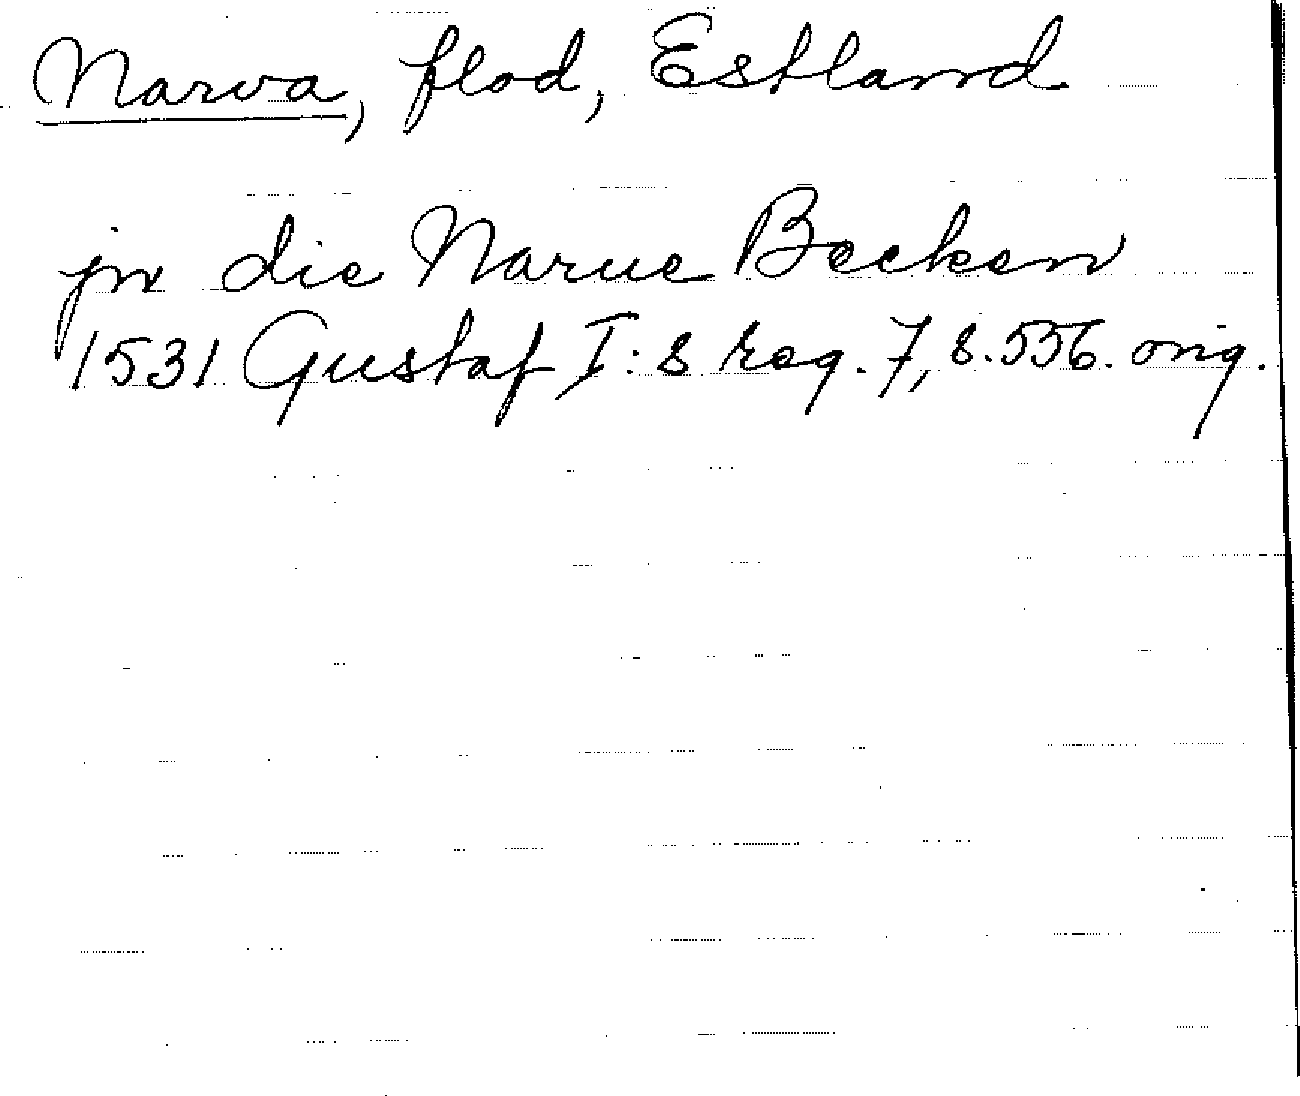 Narva, flod, Estland
jn die Narue Becken
1531 Gustaf I:s reg. 7, s. 536. orig.